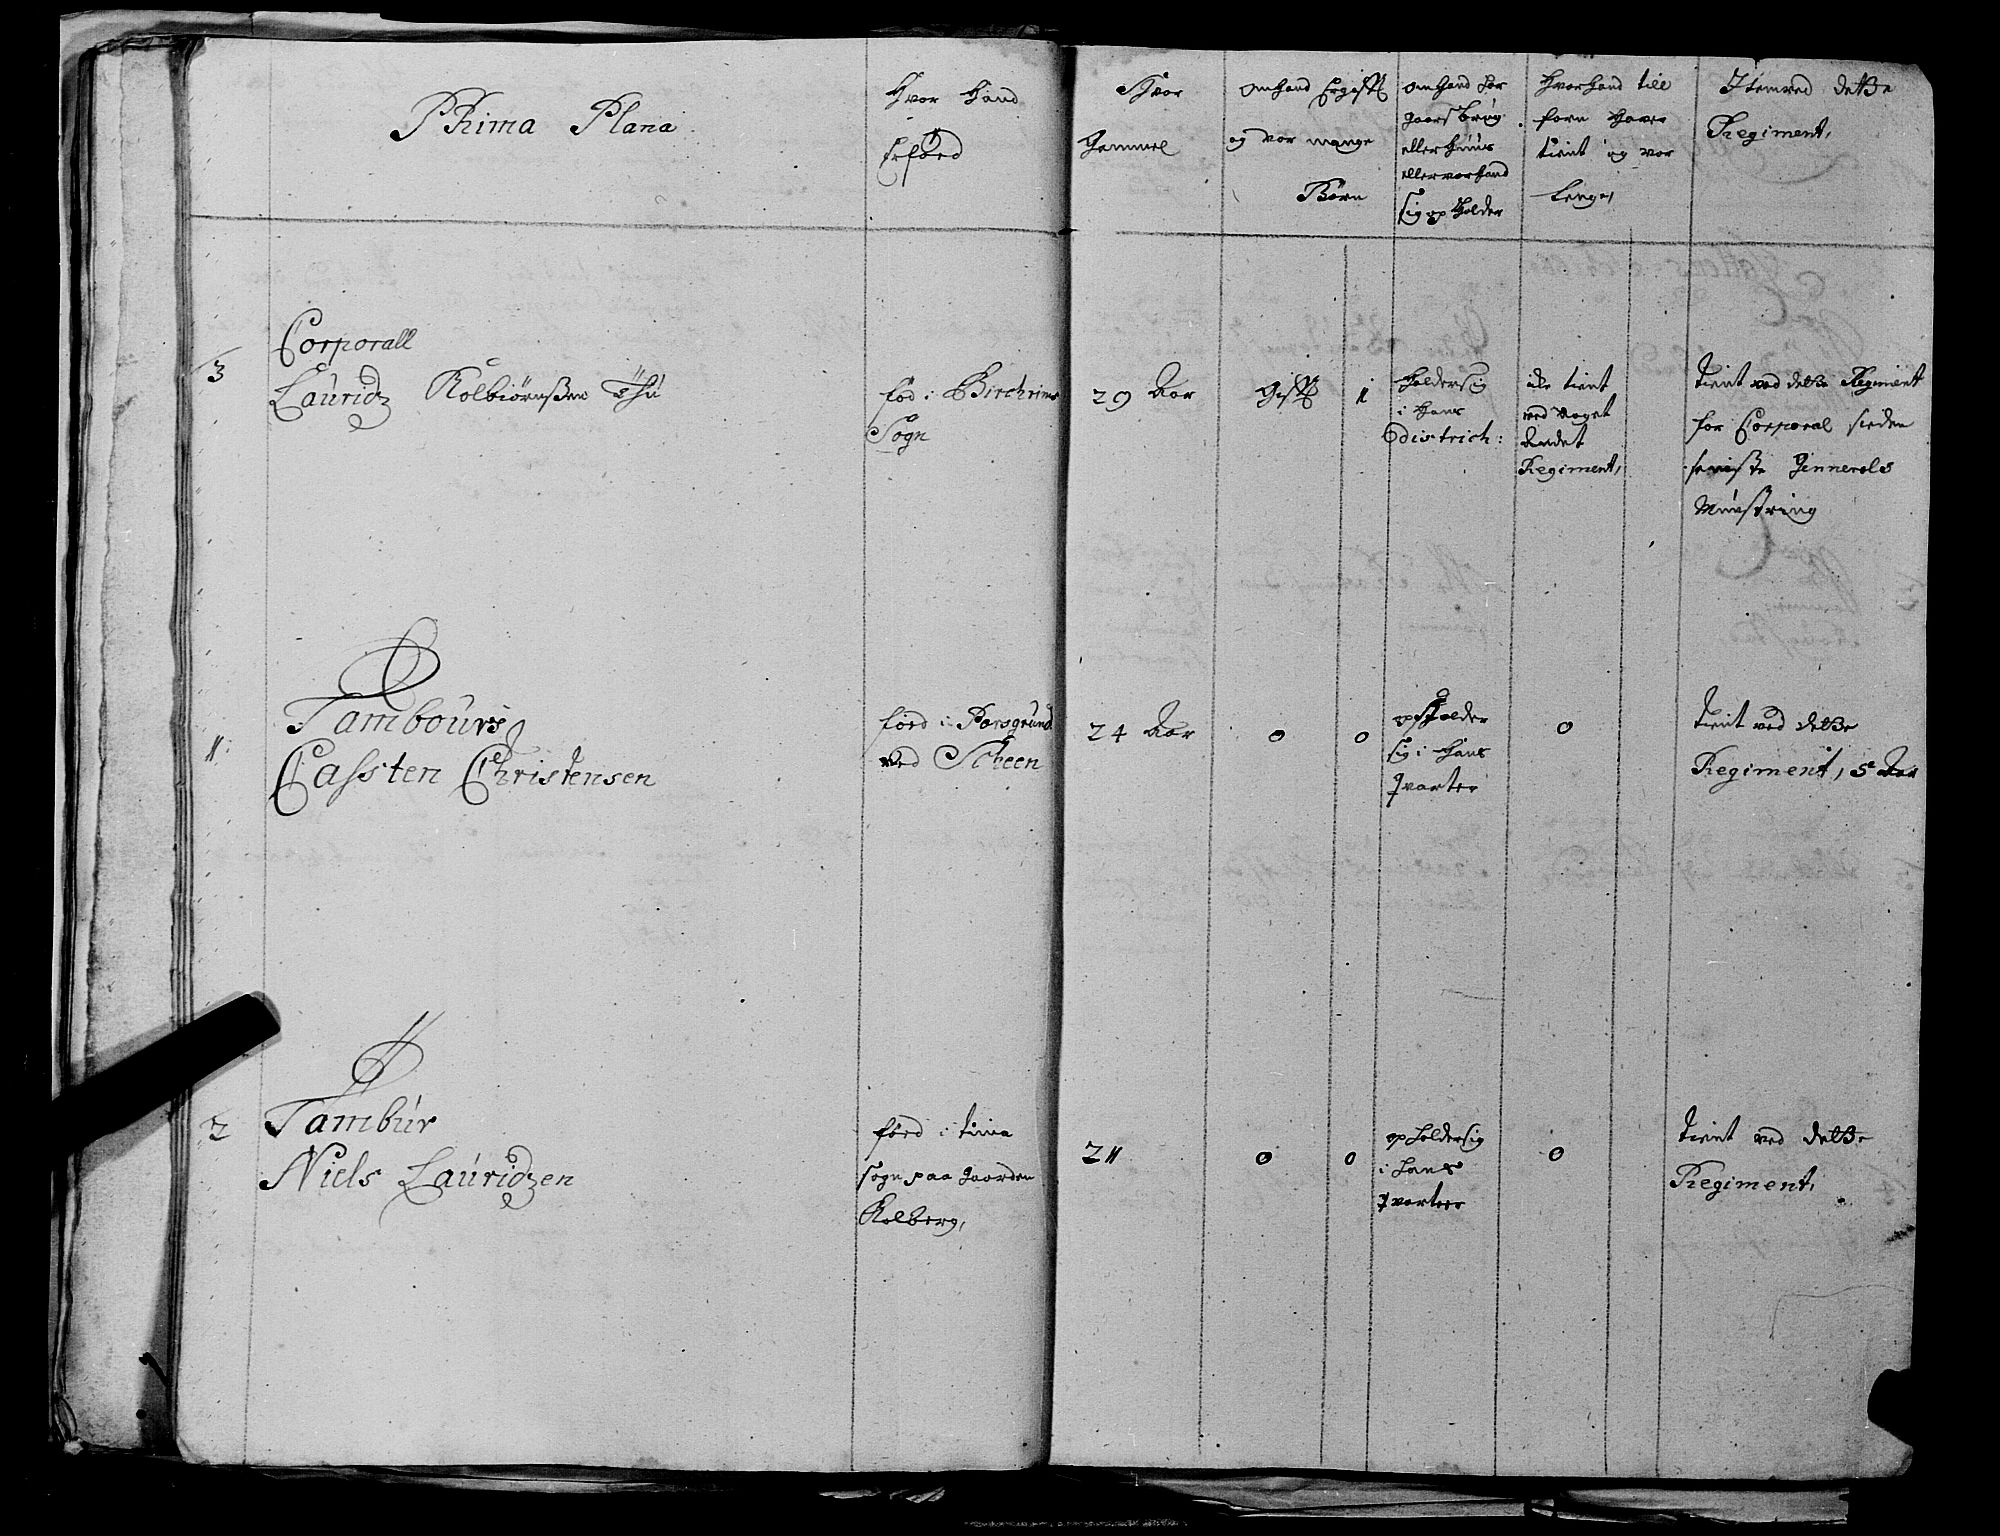 PRima Plana
Hvor Hand
Erføed
Hvor
Gammel
om hand Ergifft
og vor mange
Børn
om hand har
gaars brug
eller huus
eller vor hand
sig op Holder
Hvor hand till
forn haver
tient og vor
Lenge,
Item ved dette
Regiment,
3
Corporall
Lauridz Kolbiørnßen Thu
fød i Birchrims
Sogn
29 Aar
Gifft
1
holder sig
i hans
district:
icke tient
ved noget
andet
Regiment,
tient ved dette Regiment
for Corporal siden
seniste Generals
Mynstring
1:
Tambours
Cassten Christensen
føed i Porsgrund
ved Scheen
24 Aar
0
0
op Holder
sig i Hans
qvarter
0
tient ved dette
Regiment, 5 Aar
2
Tambur
Niels Lauridzen
føed i tiima
sogn paa gaarden
Kolberg,
21
0
0
op holder sig
i hans
qvarteer
0
tient ved dette
Regiment,